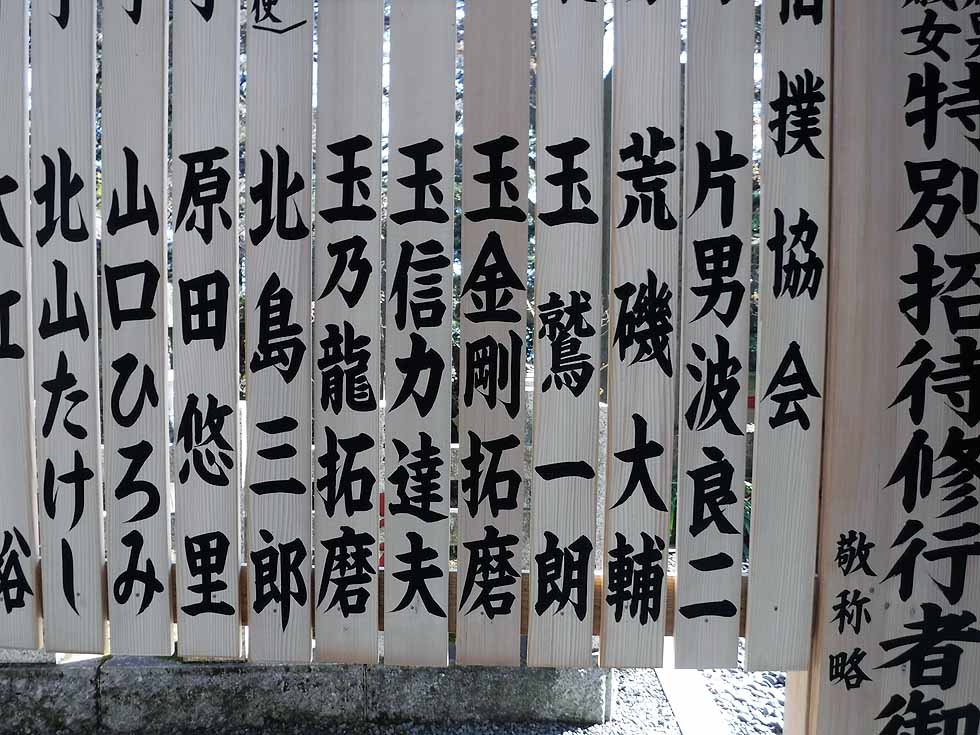 特別招待修行者御
敬称略
撲協会
片男波良二
荒磯大輔
玉鷲一朗
玉金剛拓磨
玉信力達夫
玉乃龍拓磨
北島三郎
原田悠里
山口ひろみ
北山たけし